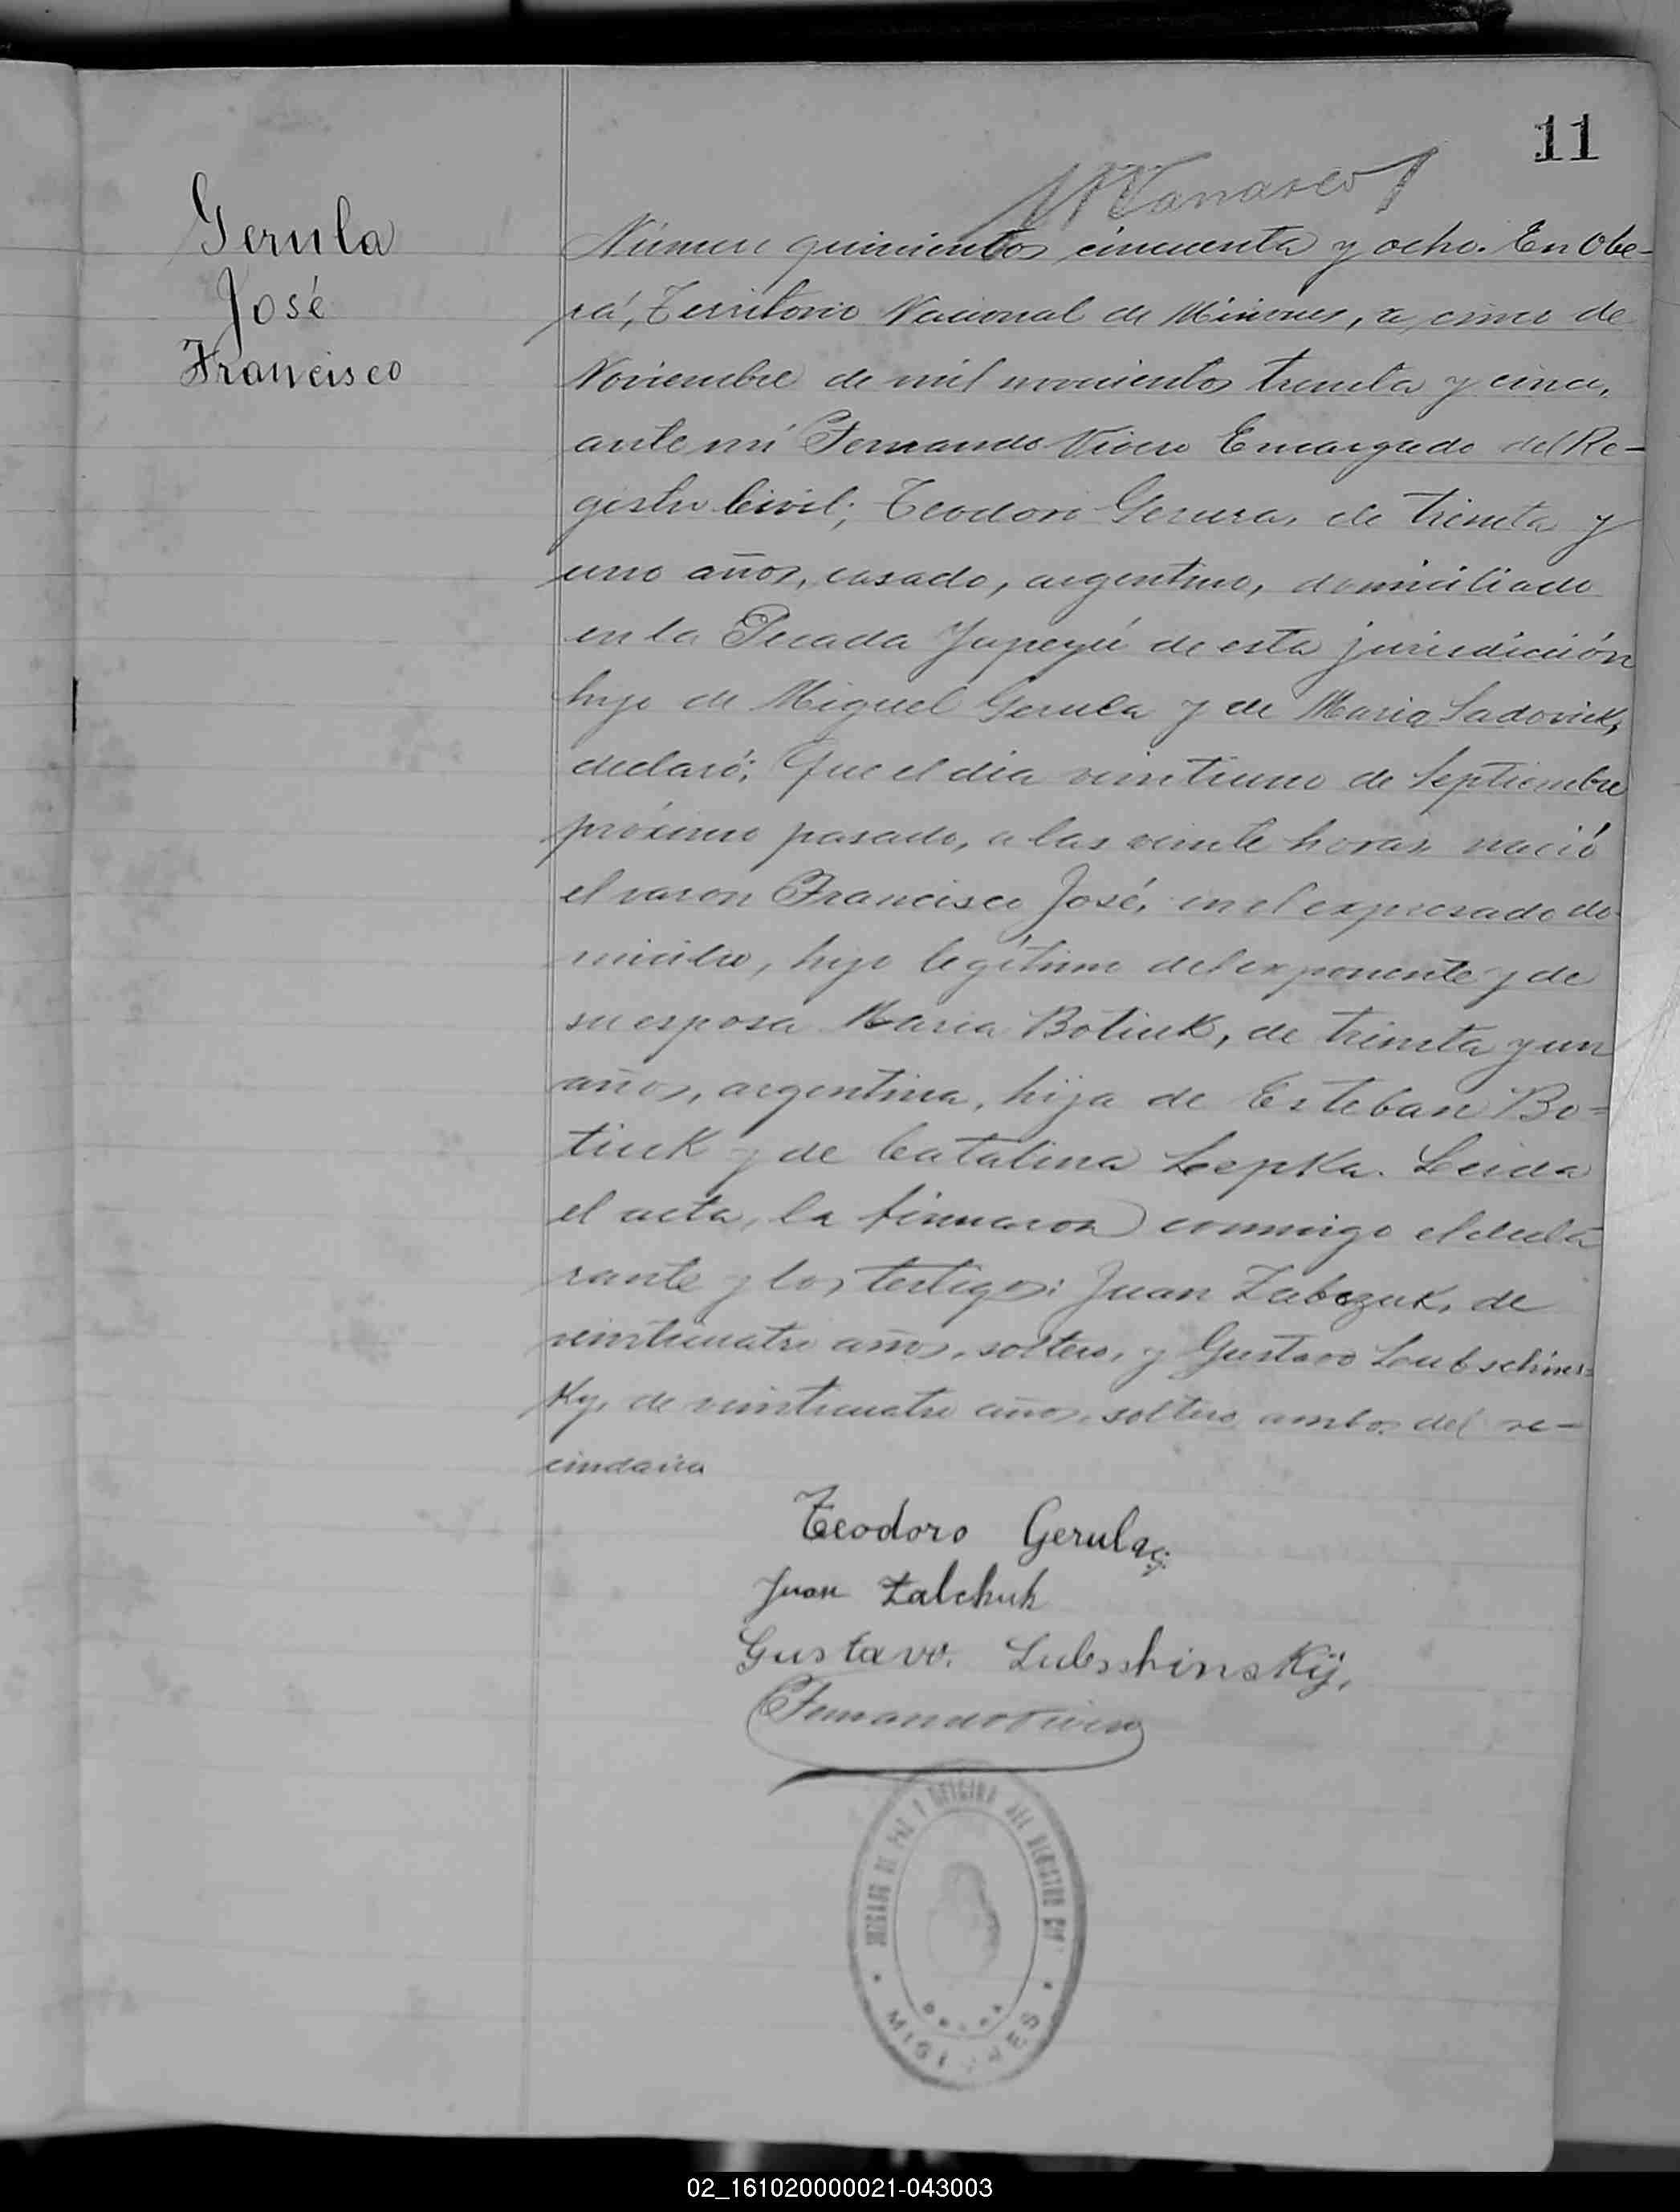 11
Gerula
José
Francisco
Número quinientos cincuenta y ocho. En Obe-
rá, Territorio Nacional de Misiones, a cinco de
Noviembre de mil novecientos treinta y cinco,
ante mí Fernando Vivero Encargado del Re-
gistro Civil; Teodoro Gerura, de treinta y
uno años, casado, argentino, domiciliado
en la Picada Yapeyú de esta jurisdicción
hijo de Miguel Gerula y de Maria Sadovick,
declaró: Que el dia veintiuno de Septiembre
próximo pasado, a las veinte horas nació
el varon Francisco José, en el expresado do-
micilio, hijo legítimo del exponente y de
su esposa Maria Botiuk, de treinta y un
años, argentina, hija de Esteban Bo=
tiuk y de Catalina Lepka. Leida
el acta, la firmaron conmigo el decla
rante y los testigos: Juan Zabczuk, de
veinticuatro años, soltero, y Gustavo Lubschins=
ky, de veinticuatro años, soltero ambos del ve-
cindario
Teodoro Gerula
Juan Zalchuk
Gustavo. Lubsshinskij,
Fernando Vivero
JUZGADO DE PAZ Y OFICINA DEL REGISTRO CIV
OBERA
MISIONES
02_161020000021-043003